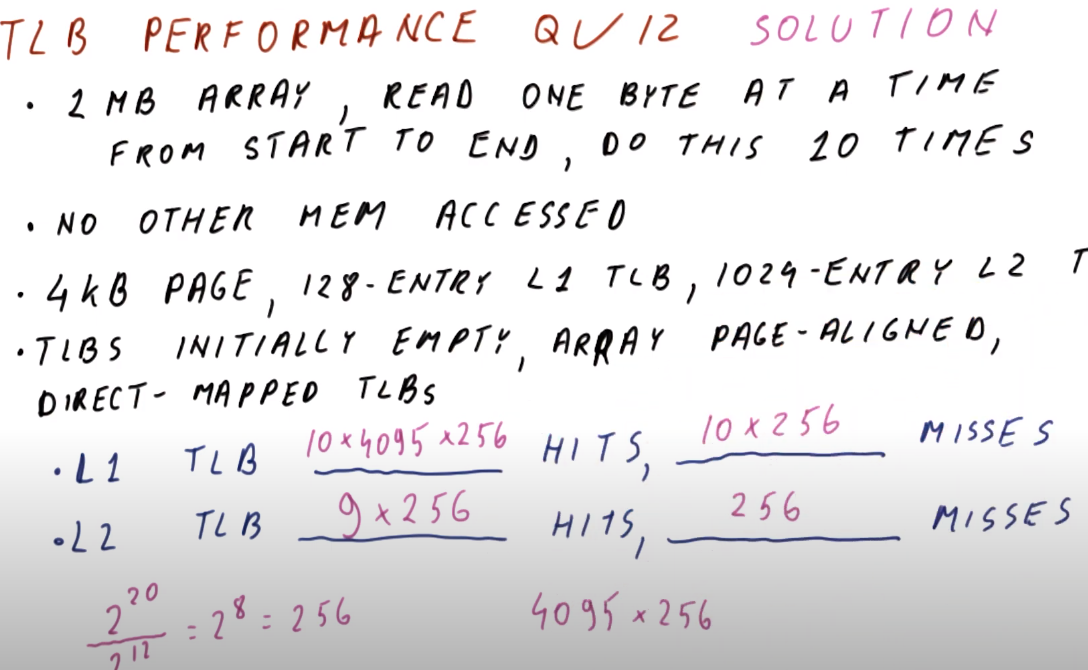 TLB PERFORMANCE QUIZ SOLUTION
• 1 MB ARRAY, READ ONE BYTE AT A TIME
FROM START TO END, DO THIS 10 TIMES
• NO OTHER MEM ACCESSED
• 4kB PAGE, 128-ENTRY L1 TLB, 1024-ENTRY L2 T
• TLBS INITIALLY EMPTY, ARRAY PAGE-ALIGNED,
DIRECT-MAPPED TLBs
• L1 TLB 10×4095×256 HITS, 10×256 MISSES
• L2 TLB 9×256 HITS, 256 MISSES
2^20/2^12 = 2^8 = 256 4095×256